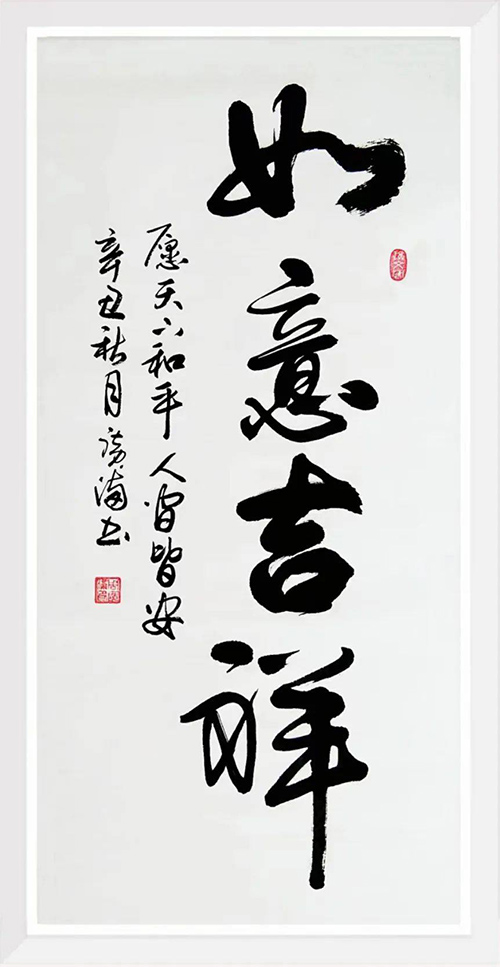 如意吉祥
愿天下和平人间皆安
辛丑秋月 书